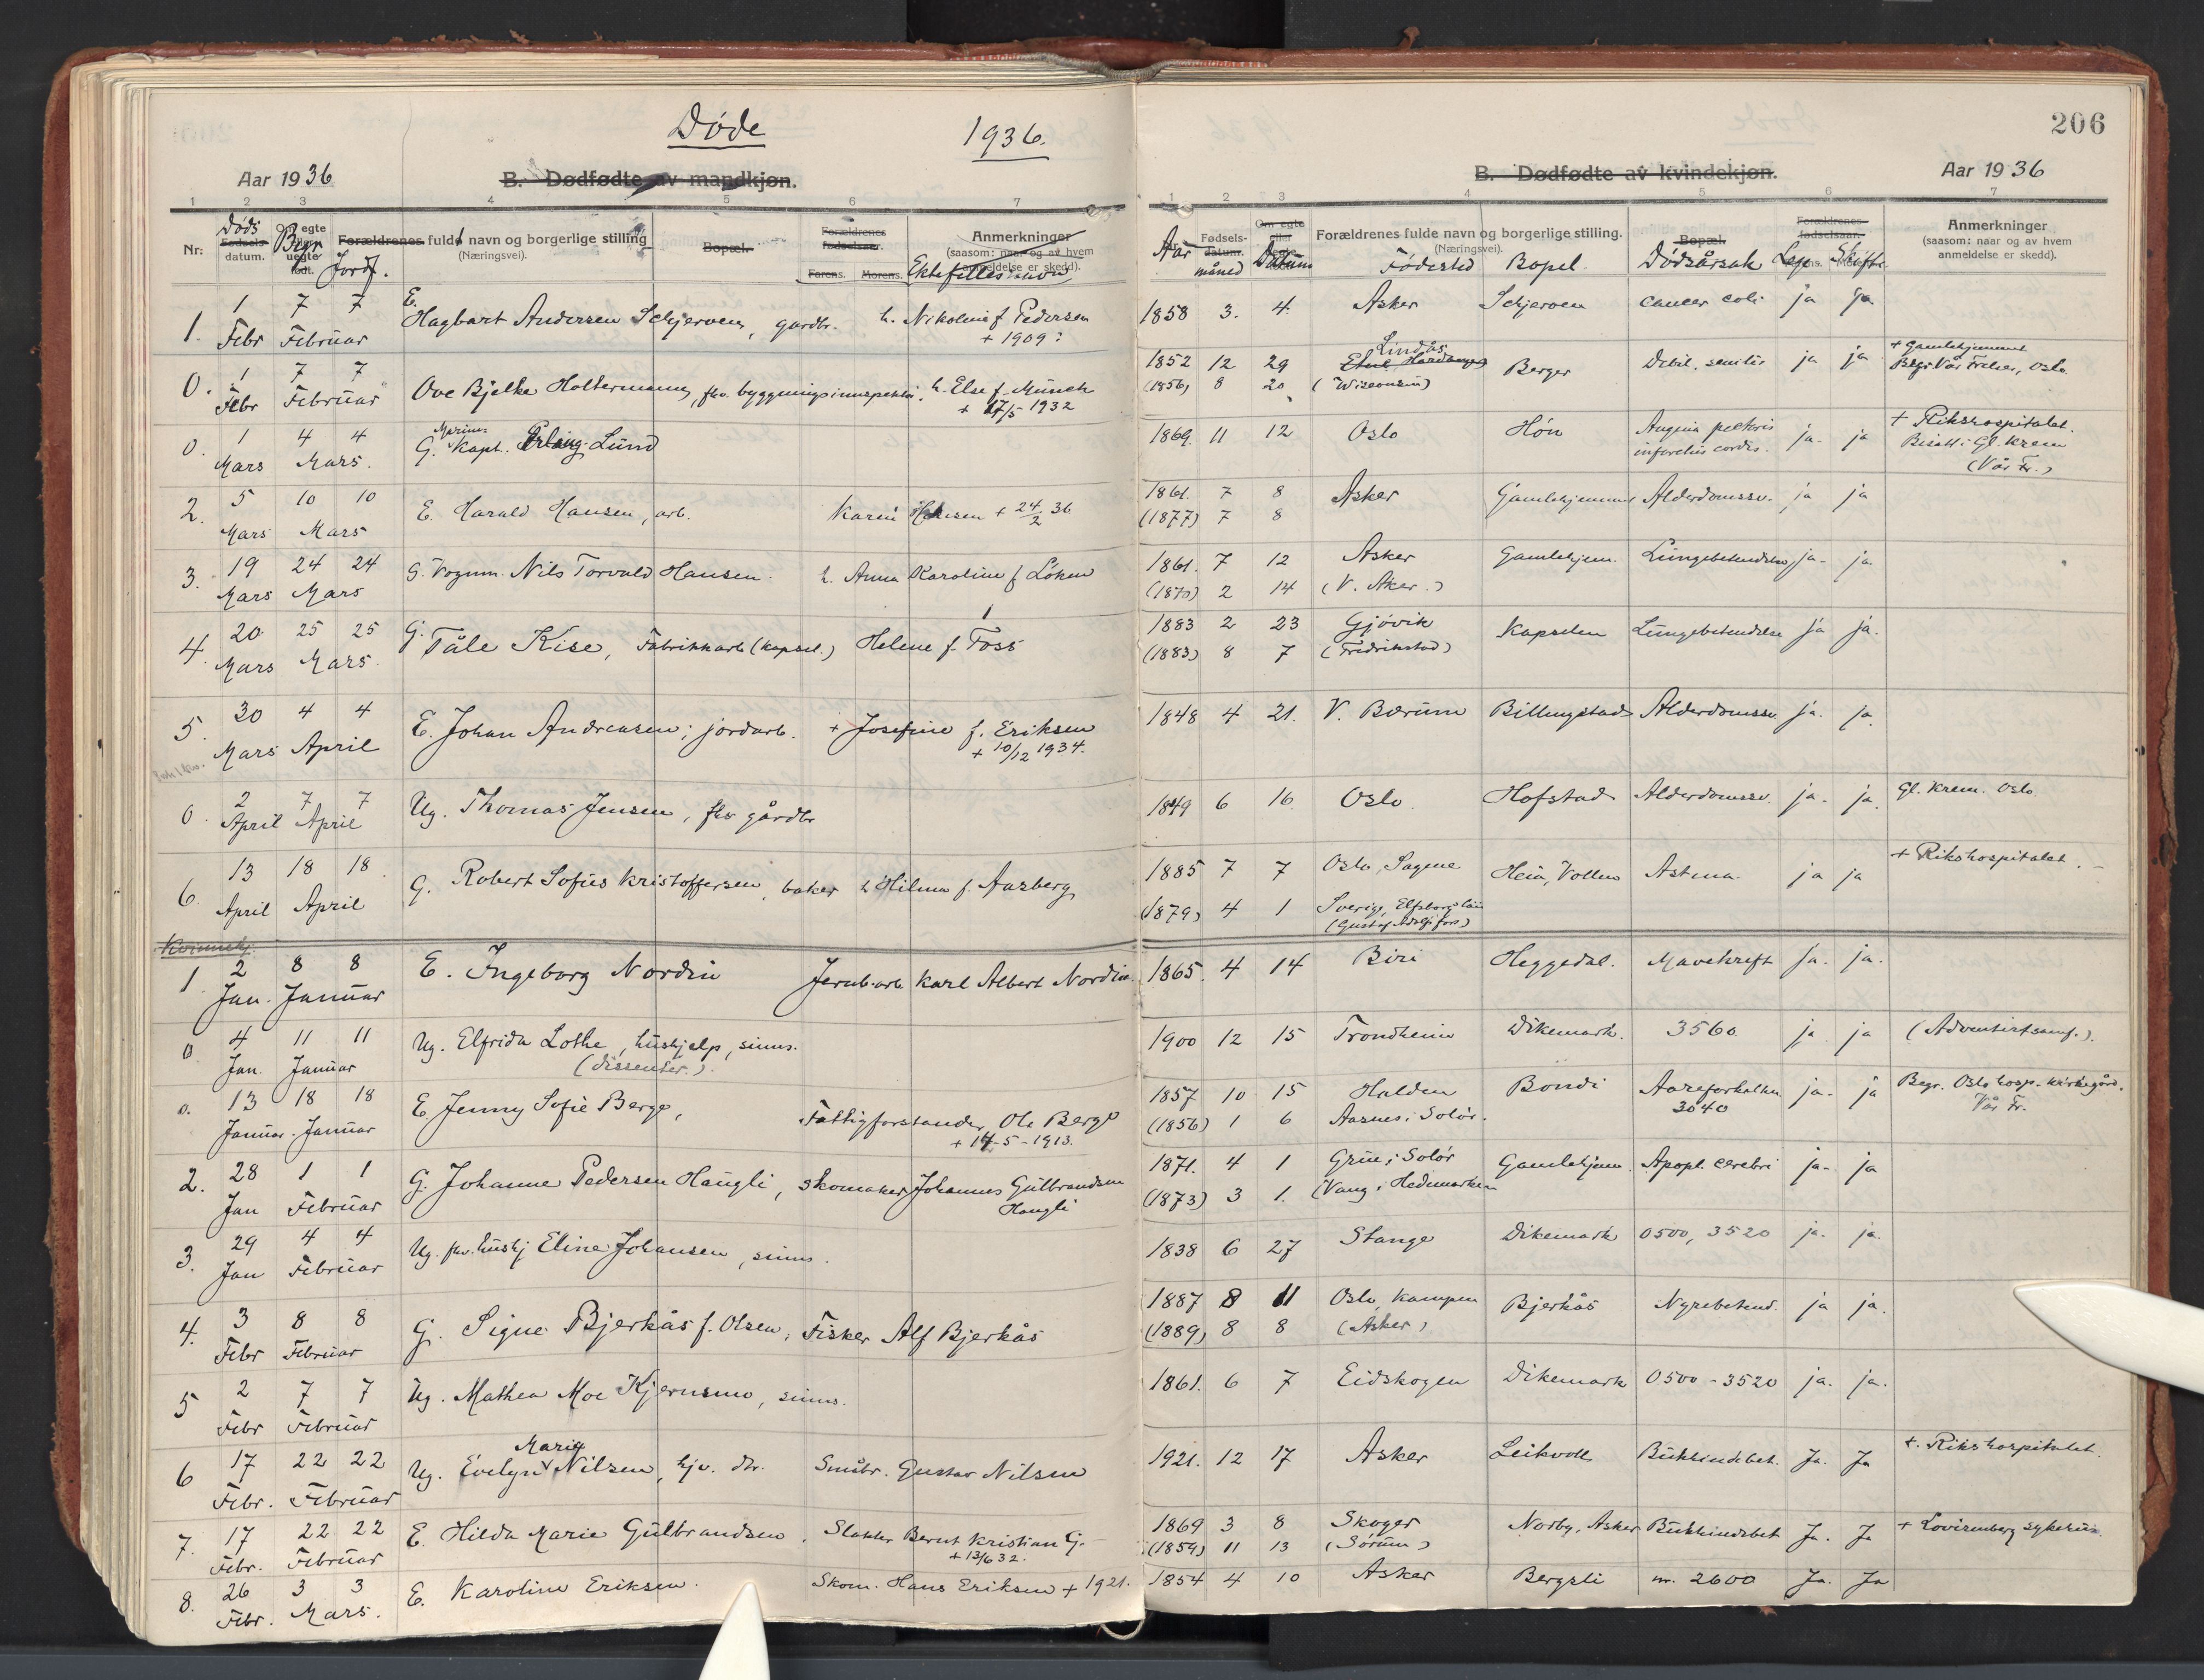 Døde 1936.
Aar 1936 B. Dødfødte av mandkjøn.
1 2 3 4 5 6 7
Nr. Døds Fødsels- datum. Om egte eller uegte født. Begr Jordf. Forældrenes fulde navn og borgerlige stilling (Næringsvei). Bopæl. Forældrenes fødselsaar. Farens. Morens. Anmerkninger (saasom: naar og av hvem anmeldelse er skedd). Ektefelles navn
1. 1 Febr 7 7 Februar E. Hagbart Andersen Schjerven, gardbr. h. Nikoline f. Pedersen
+ 1909
0. 1 Febr 7 7 Februar Ove Bjelke Holtermann, fhv. byggningsinnspektør, h. Else f. Münch
+ 17/5 1932
0. 1 Mars 4 4 Mars. G. Marine Kapt. Erling Lund
2. 5 Mars 10 10 Mars E. Harald Hansen, arb. Karen Hansen + 24/2 36
3. 19 Mars 24 24 Mars G. Vognm. Nils Torvald Hansen. h. Anna Karoline f Löken
4. 20 Mars 25 25 Mars. G. Tåle Kise, Fabrikkarb (kapsel.) Helene f. Foss
5. 30 Mars 4 4 April E. Johan Andreasen, jordarb. + Josefine f. Eriksen
+ 10/12 1934.
0. 2 April 7 7 April Ug. Thomas Jensen, fhv gårdbr
6. 13 April 18 18 April G. Robert Sofus Kristoffersen, baker h Hilma f. Aasberg
Kvinnekj.
1. 2 Jan. 8 8 Januar E. Ingeborg Nordin Jernb.arb. Karl Albert Nordin.
0 4 Jan. 11 11 Januar Ug. Elfrida Lothe, hushjelp, sinns.
(dissenter.)
0. 13 Januar. 18 18 Januar E. Jenny Sofie Berge, Fattigforstander Ole Berge
+ 14-5-1913.
2. 28 Jan 1 1 Februar G. Johanne Pedersen Haugli, skomaker Johannes Gulbrandsen
Haugli
3. 29 Jan 4 4 Februar Ug. fhv. hushj Eline Johansen, sinns.
4. 3 Febr 8 8 Februar G. Signe Bjerkås f. Olsen, Fisker Alf Bjerkås
5 2 Febr 7 7 Februar Ug. Mathea Moe Kjernsmo, sinns.
6 17 Febr. 22 22 Februar Ug. Evelyn Marie Nilsen, hjv. dtr. Småbr. Gustav Nilsen
7. 17 Febr. 22 22 Februar E. Hilda Marie Gulbrandsen. Slakter Bernt Kristian G.
+ 13/6 32.
8. 26 Febr. 3 3 Mars. E. Karoline Eriksen. Skom. Hans Eriksen + 1921.
206
B. Dødfødte av kvindekjøn. Aar 1936
1 2 3 4 5 6 7
Aar Fødsels- datum. måned Om egte eller Datum Forældrenes fulde navn og borgerlige stilling. (Næringsvei). Fødested Bopel Bopæl. Dødsårsak Forældrenes fødselsaar. Lege Skifte Anmerkninger (saasom: naar og av hvem anmeldelse er skedd).
1858 3. 4. Asker Schjerven cancer coli ja ja.
1852 12 29 Lindås Etne Hardanger Berger Debil. senilis ja ja + Gamlehjemmet
(1856) 8 20 (Wisconsin) Begr Vår Frelser, Oslo.
1869. 11 12 Oslo Høn Angina pectoris ja. ja + Rikshospitalet.
infarctus cordis. Bisatt i Gl. Krem
(Vår Fr.)
1861. 7 8 Asker Gamlehjemmet Alderdomssv. ja ja
(1877) 7 8
1861. 7 12 Asker Gamlehjem. Lungebetendelse ja- ja.
(1870) 2 14 (V. Aker.)
1883 2 23 Gjövik Kapselen Lungebetendelse ja ja.
(1883) 8 7 (Fredrikstad)
1848 4 21. V. Bærum Billingstad Alderdomssv. ja. ja.
1849 6 16. Oslo. Hofstad Alderdomssv. ja. ja. Gl. Krem. Oslo.
1885 7 7 Oslo, Sagene Heia, Vollen Astma ja ja + Rikshospitalet.
(1879) 4 1 Sverige, Elfsborgs län
(Gustaf Adolfsfors)
1865. 4 14 Biri Heggedal. Mavekreft Ja. ja.
1900 12 15 Trondheim Dikemark. 3560. ja ja (Adventistsamf.).
1857 10 15 Halden Bondi Aareforkalkn. ja. ja Begr. Oslo hosp. kirkegård.
(1856) 1 6 Aasnes i Solör. 3040 Vår Fr.
1871. 4 1 Grue i Solör Gamlehjem. Apopl. cerebri ja- ja
(1873) 3 1. (Vang i Hedemarken
1838 6 27 Stange Dikemark 0500, 3520 ja. ja.
1887 8 11 Oslo, Kampen Bjerkås Nyrebetend. ja ja.
(1889) 8 8 (Asker)
1861. 6 7 Eidskogen Dikemark 0500-3520 ja. ja.
1921. 12 17 Asker Leikvoll Bukhindebet. Ja. Ja +. Rikshospitalet.
1869 3 8 Skoger Norby, Asker Bukhindebet Ja. Ja + Lovisenberg sykehus.
(1859) 11 13 (Sørum)
1854 4 10 Asker Bergsli nr. 2600 Ja. Ja